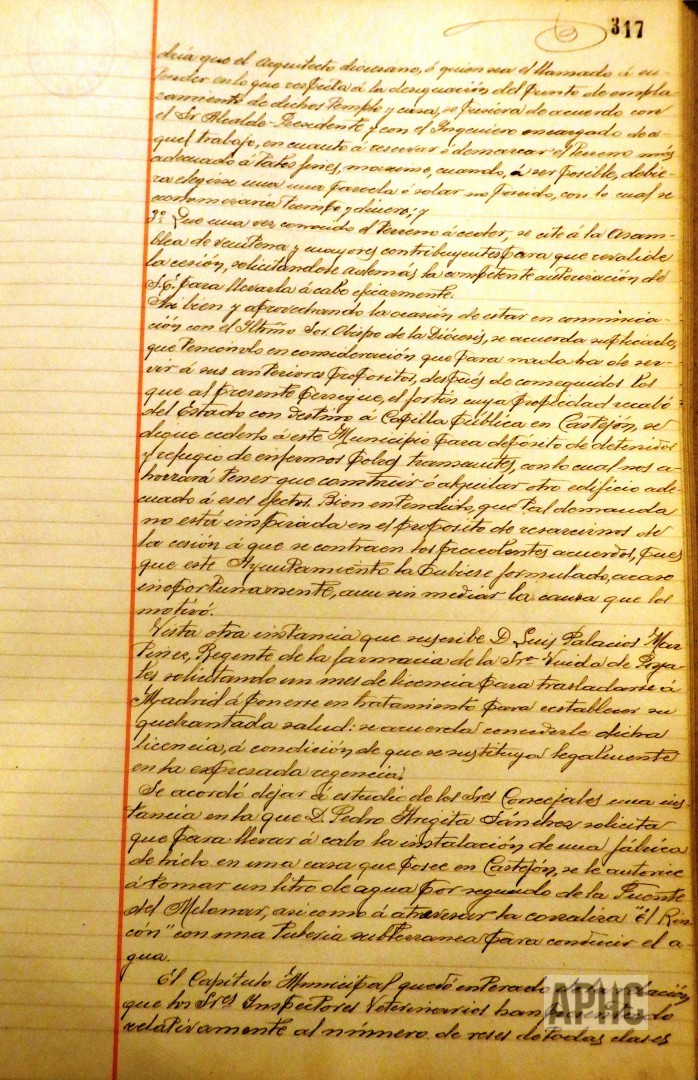 317
dría que el Arquitecto diocesano, ó quien sea el llamado á en-
tender en lo que respecta á la designación del punto de empla-
zamiento de dichos templo y casa, se pusiera de acuerdo con
el Sr Alcalde-Presidente y con el Ingeniero encargado de a-
quel trabajo, en cuanto á reservar ó demarcar el terreno más
adecuado á tales fines, máxime, cuando, á ser posible, debie-
ra elegirse una una parcela ó solar no poseido, con lo cual se
economizaría tiempo y dinero; y
3º Que una vez conocido el terreno á ceder, se cite á la Asam-
blea de veintena y mayores contribuyentes para que revalide
la cesión, solicitándose además la competente autorización de
S.E. para llevarla á cabo eficazmente.
Así bien y aprovechando la ocasión de estar en comunica-
ción con el Iltmo Sor Obispo de la Diócesis, se acuerda suplicarle,
que teniendo en consideración que para nada ha de ser-
vir á sus anteriores propósitos, después de conseguidos los
que al presente persegue, el fortín cuya propiedad recabó
del Estado con destino á Capilla pública en Castejón, se
digne cederlo á este Municipio para depósito de detenidos
y refugio de enfermos pobres transeuntes, con lo cual nos a-
horrará tener que construir ó alquilar otro edificio ade-
cuado á esos efectos. Bien entendido, que tal demanda
no está inspirada en el propósito de resarcirnos de
la cesión á que se contraen los precedentes acuerdos, pues
que este Ayuntamiento la hubiese formulado, acaso
inoportunamente, aun sin mediar la causa que los
motivó.
Vista otra instancia que suscribe D. Luis Palacios Mar-
tinez, Regente de la farmacia de la Sra Viuda de
solicitando un mes de licencia para trasladarse á
Madrid á ponerse en tratamiento para restablecer su
quebrantada salud: se acuerda concederle dicha
licencia, á condición de que se sustituya legalmente
en la expresada regencia.
Se acordó dejar á estudio de los Sres Concejales una ins-
tancia en la que D. Pedro Argita Sánchez solicita
que para llevar á cabo la instalación de una fábrica
de hielo en una casa que posee en Castejón, se le autorice
á tomar un litro de agua por segundo de la Fuente
del Melonar, asi como á atravesar la corraliza "El Rin-
cón" con una tubería subterranea para conducir el a-
gua.
El Capítulo Municipal quedó enterado de la relación
que los Sres Inspectores Veterinarios han
relativamente al número de reses de todas clases
APHC